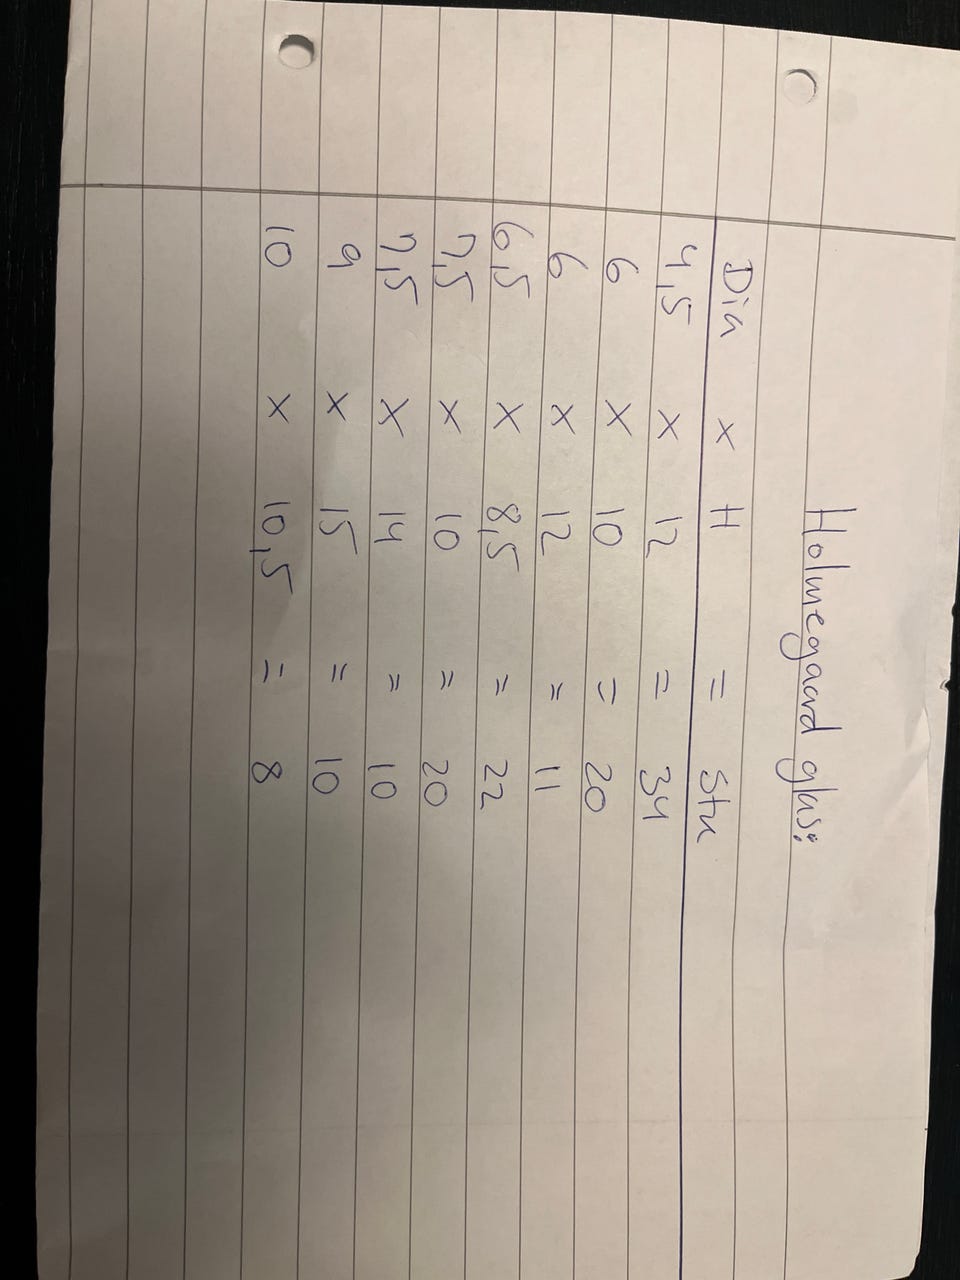 Holmegaard glas:
Dia x H = Stk
4,5 x 12 = 34
6 x 10 = 20
6 x 12 = 11
6,5 x 8,5 = 22
7,5 x 10 = 20
7,5 x 14 = 10
9 x 15 = 10
10 x 10,5 = 8